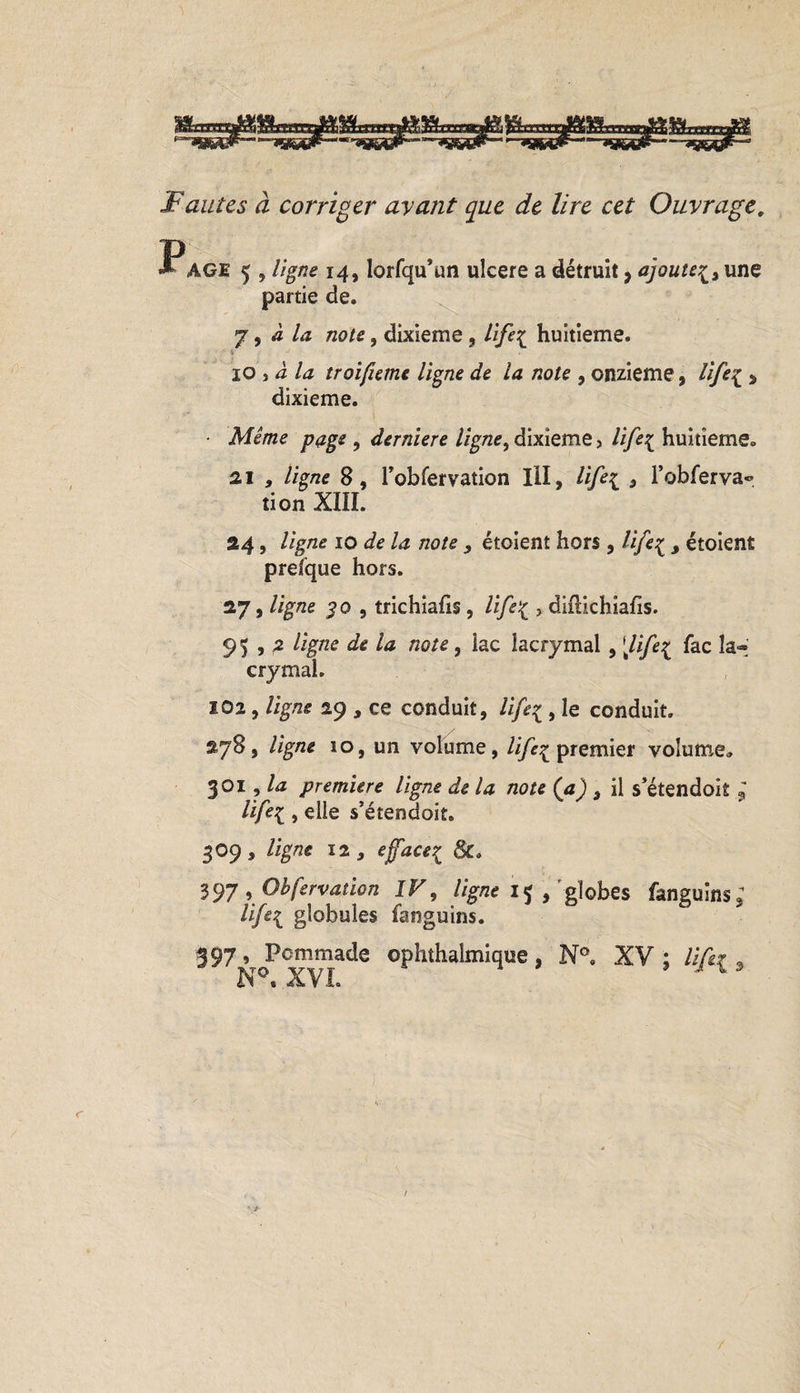 Fautes à corriger avant que de lire cet Ouvrage.
PAGE 5, ligne 14, lorſqu'un ulcere a détruit, ajoutez, une
partie de.
7, à la note, dixieme, liſez huitieme.
10, à la troiſieme ligne de la note, onzieme, liſez,
dixieme.
Même page, derniere ligne, dixieme, liſez huitieme.
21, ligne 8, l'obſervation III, liſez, l'obſerva-
tion XIII.
24, ligne 10 de la note, étoient hors, liſez, étoient
preſque hors.
27, ligne 30, trichiaſis, liſez, diſtichiaſis.
95, 2 ligne de la note, lac lacrymal, liſez ſac la-
crymal.
102, ligne 29, ce conduit, liſez, le conduit.
278, ligne 10, un volume, liſez premier volume.
301, la premiere ligne de la note (a), il s'étendoit,
liſez, elle s'étendoit.
309, ligne 12, effacez &.
397, Obſervation IV, ligne 15, globes ſanguins,
liſez globules ſanguins.
397, Pommade ophthalmique, N°. XV; liſez,
N°. XVI.